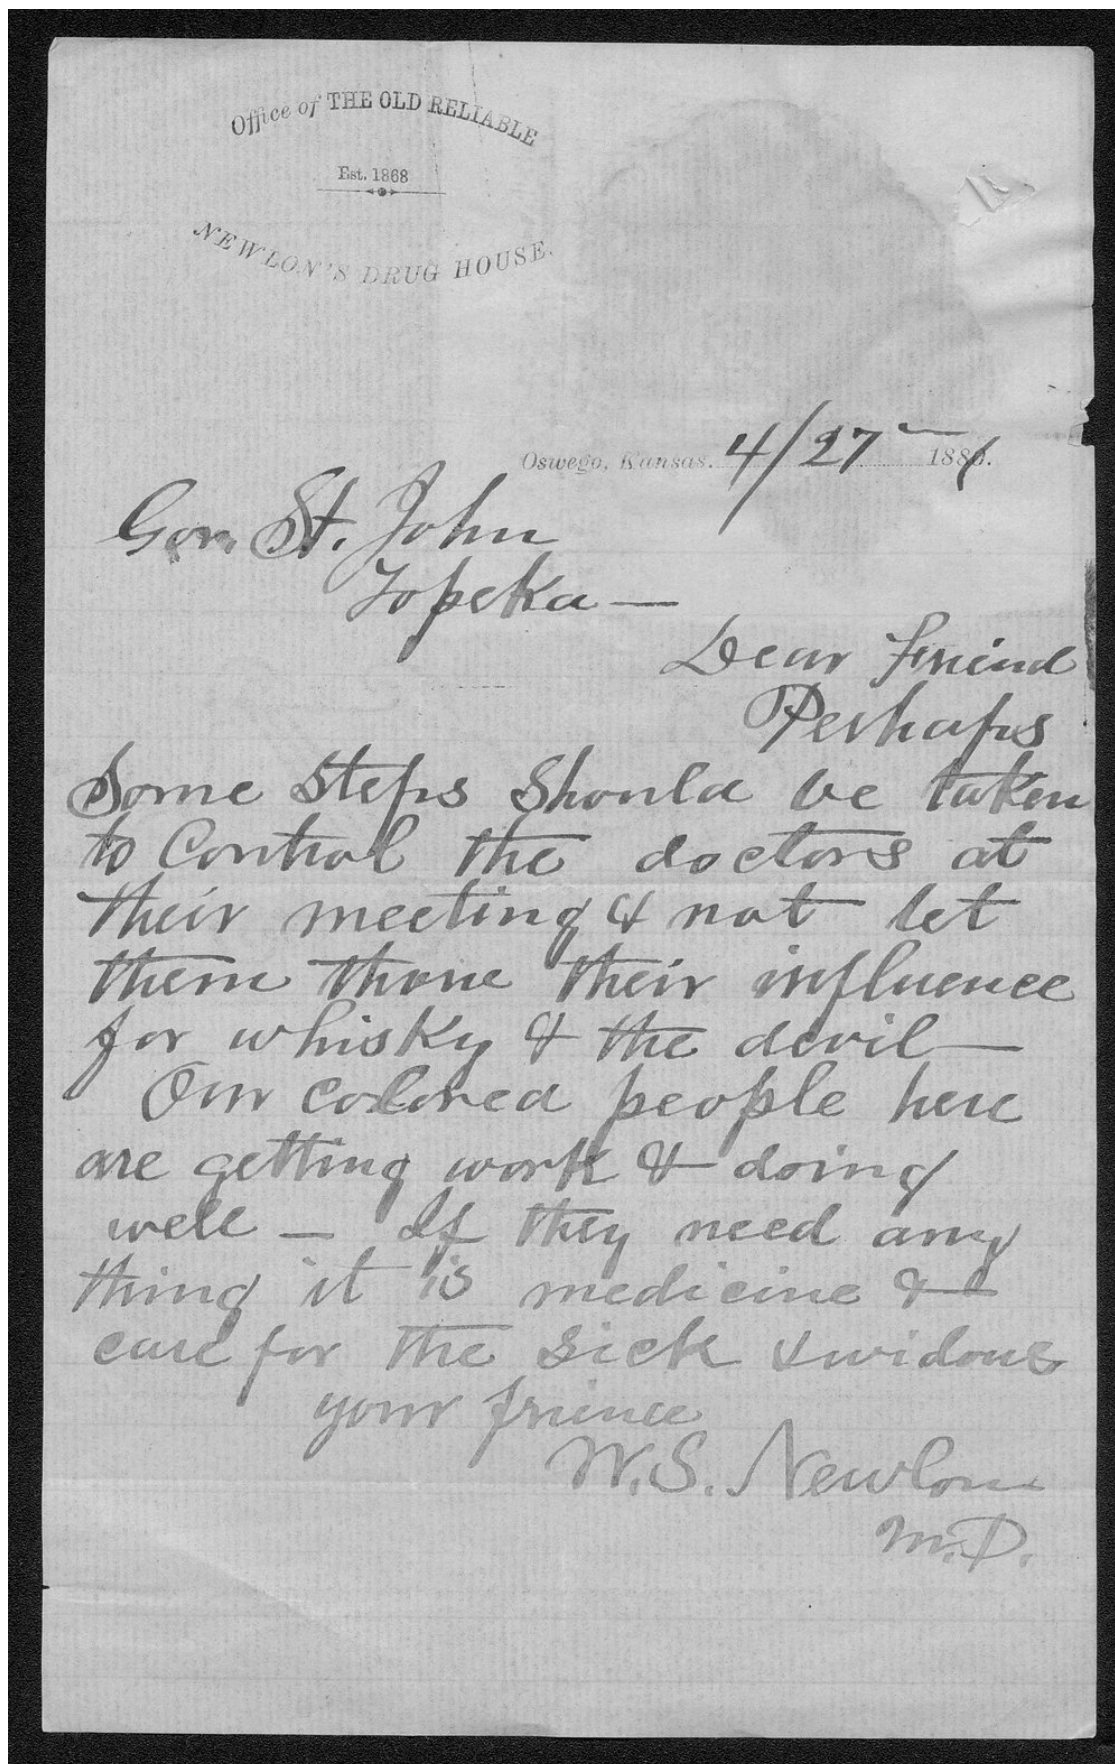 Office of THE OLD RELIABLE
Est. 1868
NEWLON'S DRUG HOUSE.
Oswego, Kansas. 4/27 1881.
Gov. St. John
Topeka —
Dear Friend
Perhaps
Some steps should be taken
to control the doctors at
their meeting & not let
them throw their influence
for whisky & the devil —
Our colored people here
are getting work & doing
well — If they need any
thing it is medicine &
care for the sick & widows
your friend
W. S. Newlon
M.D.